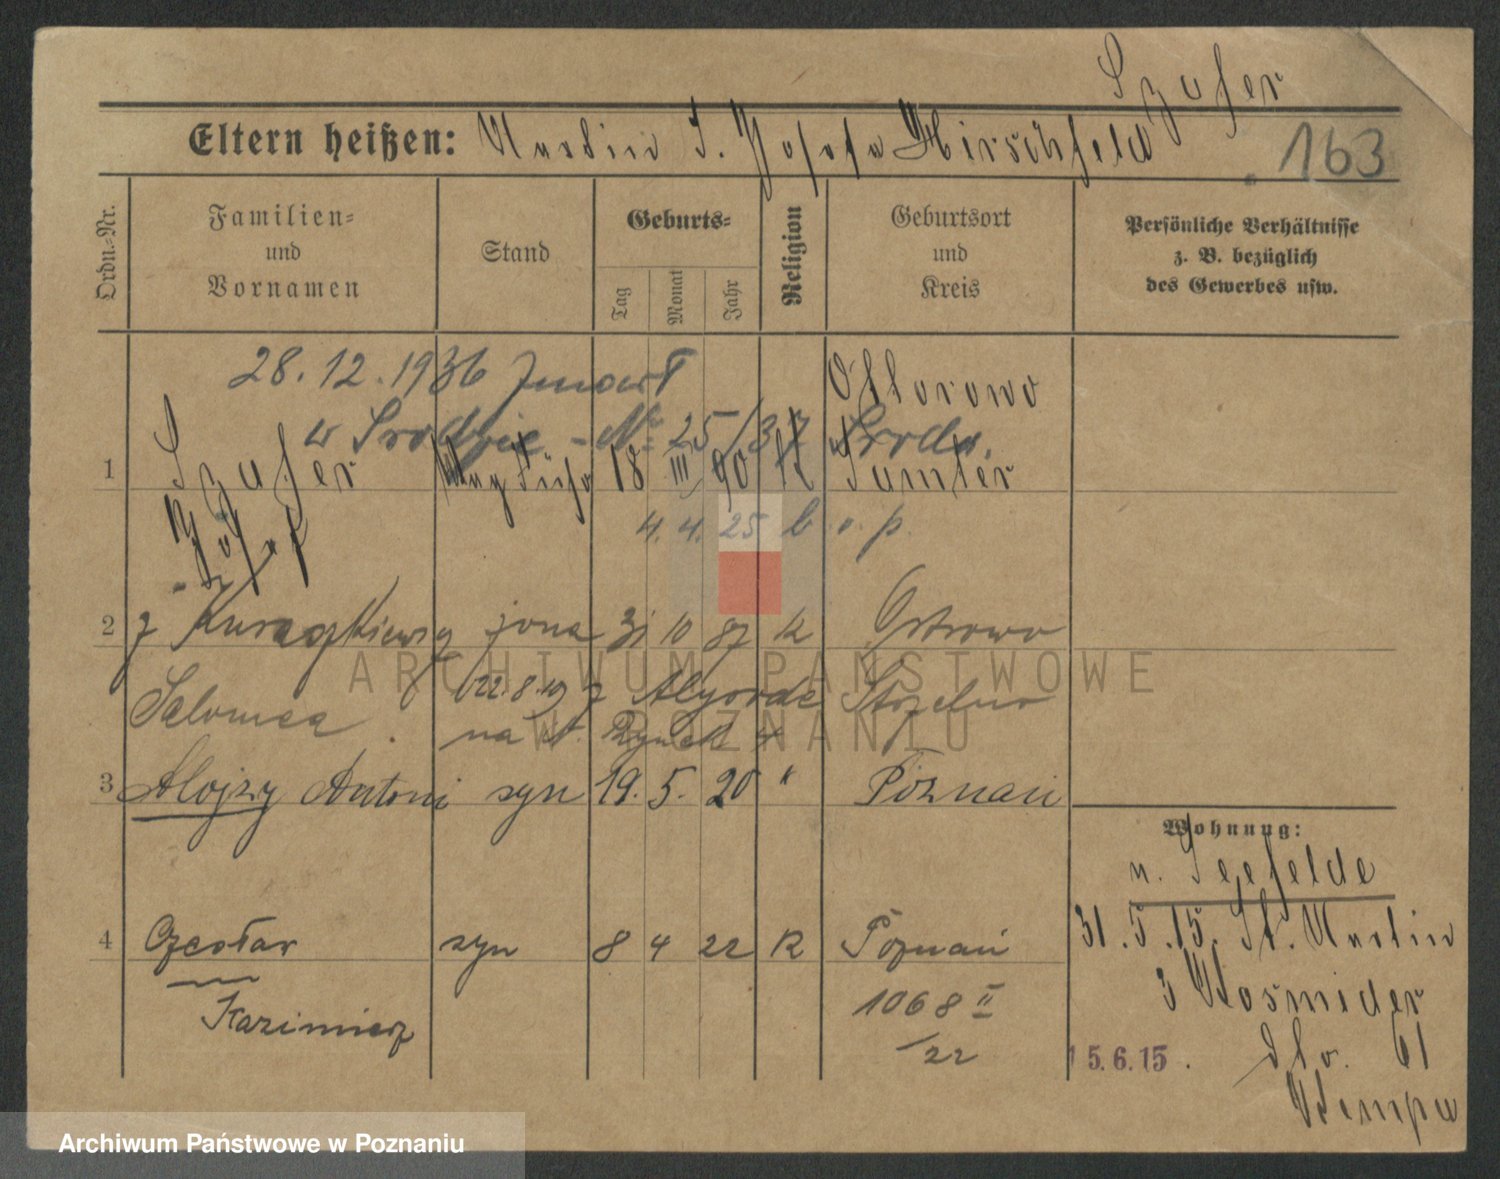 Szafer
Eltern heißen: Martin S. Josefa Hirschfeld
163
Ordn.-Nr.
Familien-
und
Vornamen
Stand
Geburts-
Tag
Monat
Jahr
Religion
Geburtsort
und
Kreis
Persönliche Verhältnisse
z. B. bezüglich
des Gewerbes usw.
28.12.1936 zmarł
w Środzie - Nr 25/37 Środa.
Ottorowo
1 Szafer 18 III 90 K Samter
Józef
4. 4. 25 b. o. p.
2 ż Kuraszkiewicz żona 31 10 87 K Ostrowo
Salomea 22.8.19 Strzelno
na St. Rynek 4
3 Alojzy Antoni syn 19. 5. 20 " Poznań
Wohnung:
n. Seefelde
31.5.15. St. Martin
4 Czesław syn 8 4 22 K Poznań
3
Kazimierz
1068 II
/22
15.6.15.
61
ARCHIWUM PAŃSTWOWE
W POZNANIU
Archiwum Państwowe w Poznaniu